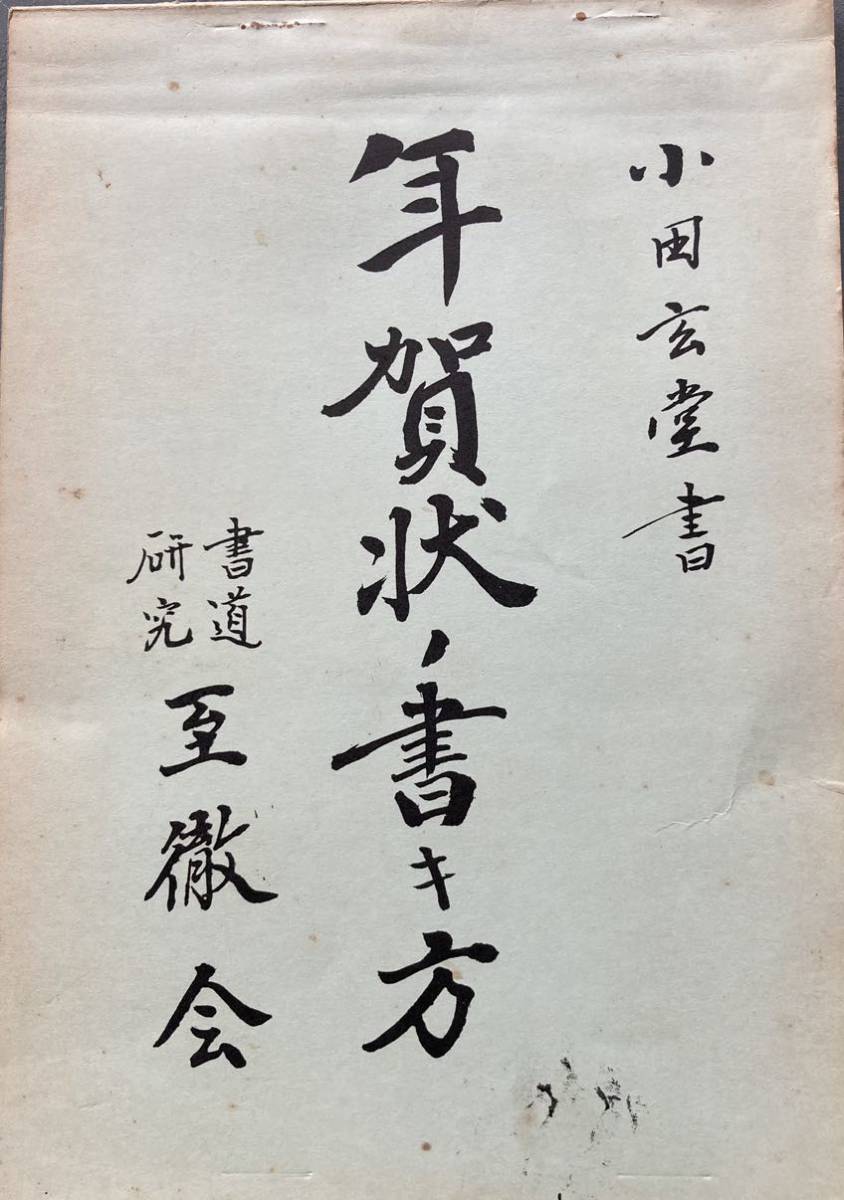 小田玄堂書
年賀状ノ書キ方
書道
研究
至徹会